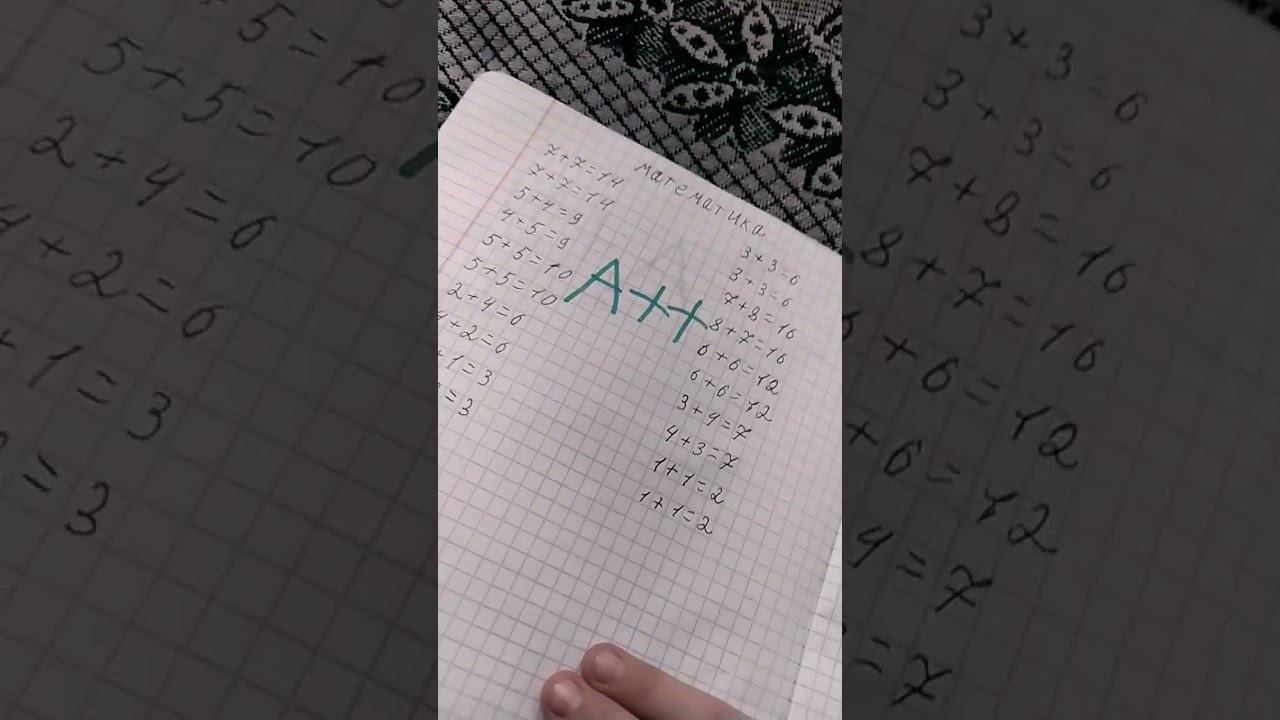 математика
7+7=14
7+7=14
5+4=9
4+5=9
5+5=10
5+5=10
2+4=6
4+2=6
+1=3
=3
A++
3+3=6
3+3=6
7+8=16
8+7=16
6+6=12
6+6=12
3+4=7
4+3=7
1+1=2
1+1=2